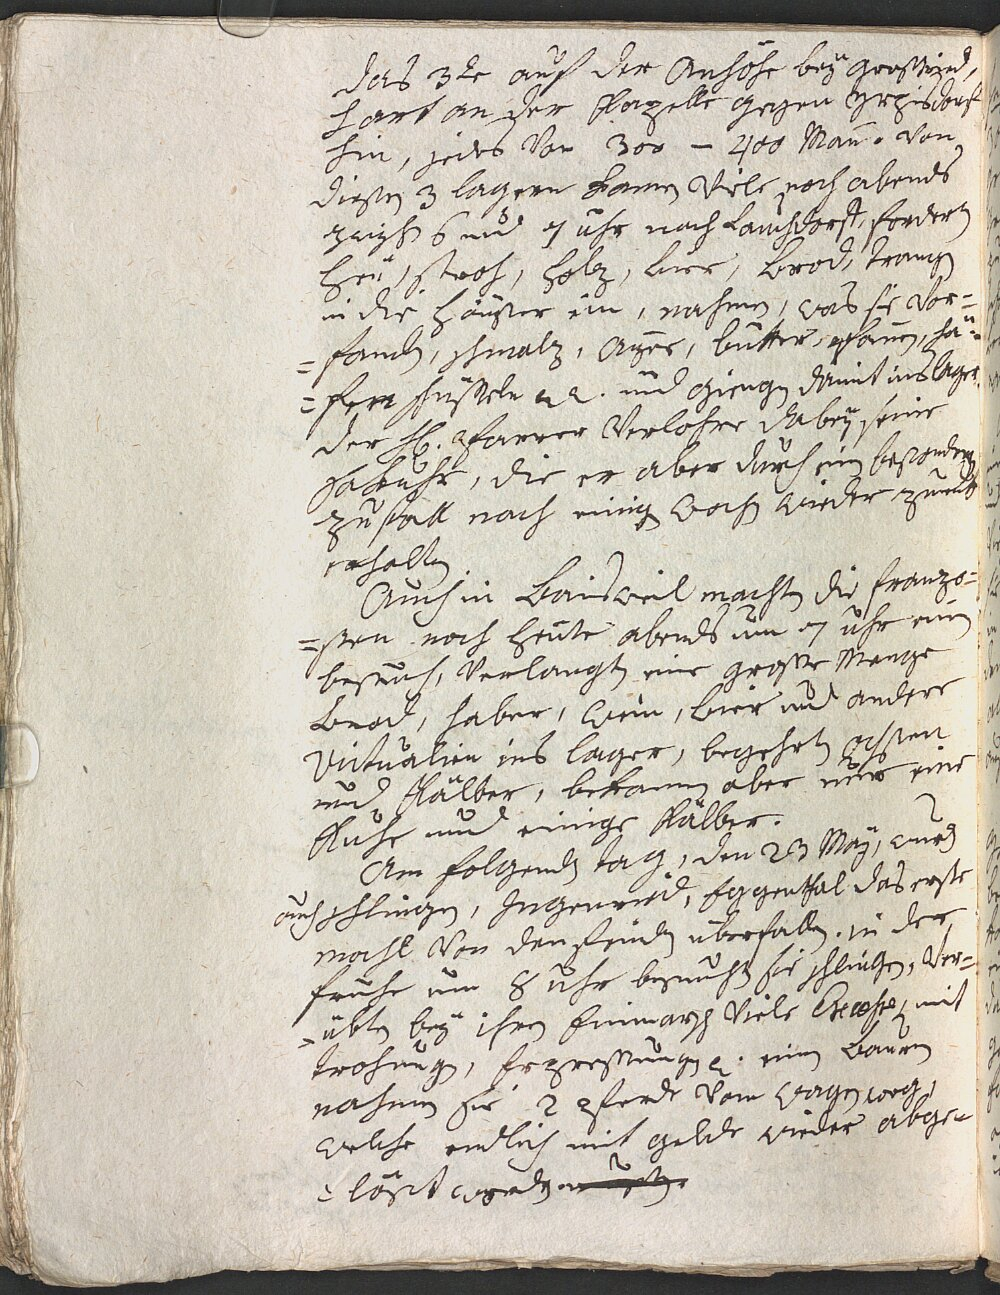 das 3te auf der Anhöhe bey Großried,
hart an der Kapelle gegen Irpisdorf
hin, jedes von 300 – 400 Mann. von
diesen 3 lagern kamen viele noch abends
zwisch 6 und 7 uhr nach Lauchdorf, fordertn
heü, stroh, holz, bier, brod, trangn
in die häußer ein, nahmen, was sie vor=
=fanden, schmalz, ayer, butter, pfanen, hä=
=fen schüßeln u. und giengn damit ins lager.
der H. Pfarrer verlohre dabey seine
sakuhr, die er aber durch ein besondern
zufall nach einign wochn wieder zurück
erhaltn
Auch in Baisweil machtn die franzo=
=sen noch heute abends um 7 uhr ein
besuch, verlangtn eine große Menge
brod, haber, wein, bier und andere
Victualien ins lager, begehrtn ochsen
und Kälber, bekamen aber nur eine
Kuhe und einige Kälber.
Am folgendn tag, den 23 May, wurdn
auch schlingen, Ingenried, Eggenthal das erste
mahl von den feindn überfalln. in der
fruhe um 8 uhr besuchtn sie schlingen, ver=
=übtn bey ihren Einmarsch viele mit
trohungn, Erpressungn. einen Bauren
nahmen sie 2 pferde vom wagen weg,
welche endlich mit gelde wieder abge=
=lößt werdn mußtn.